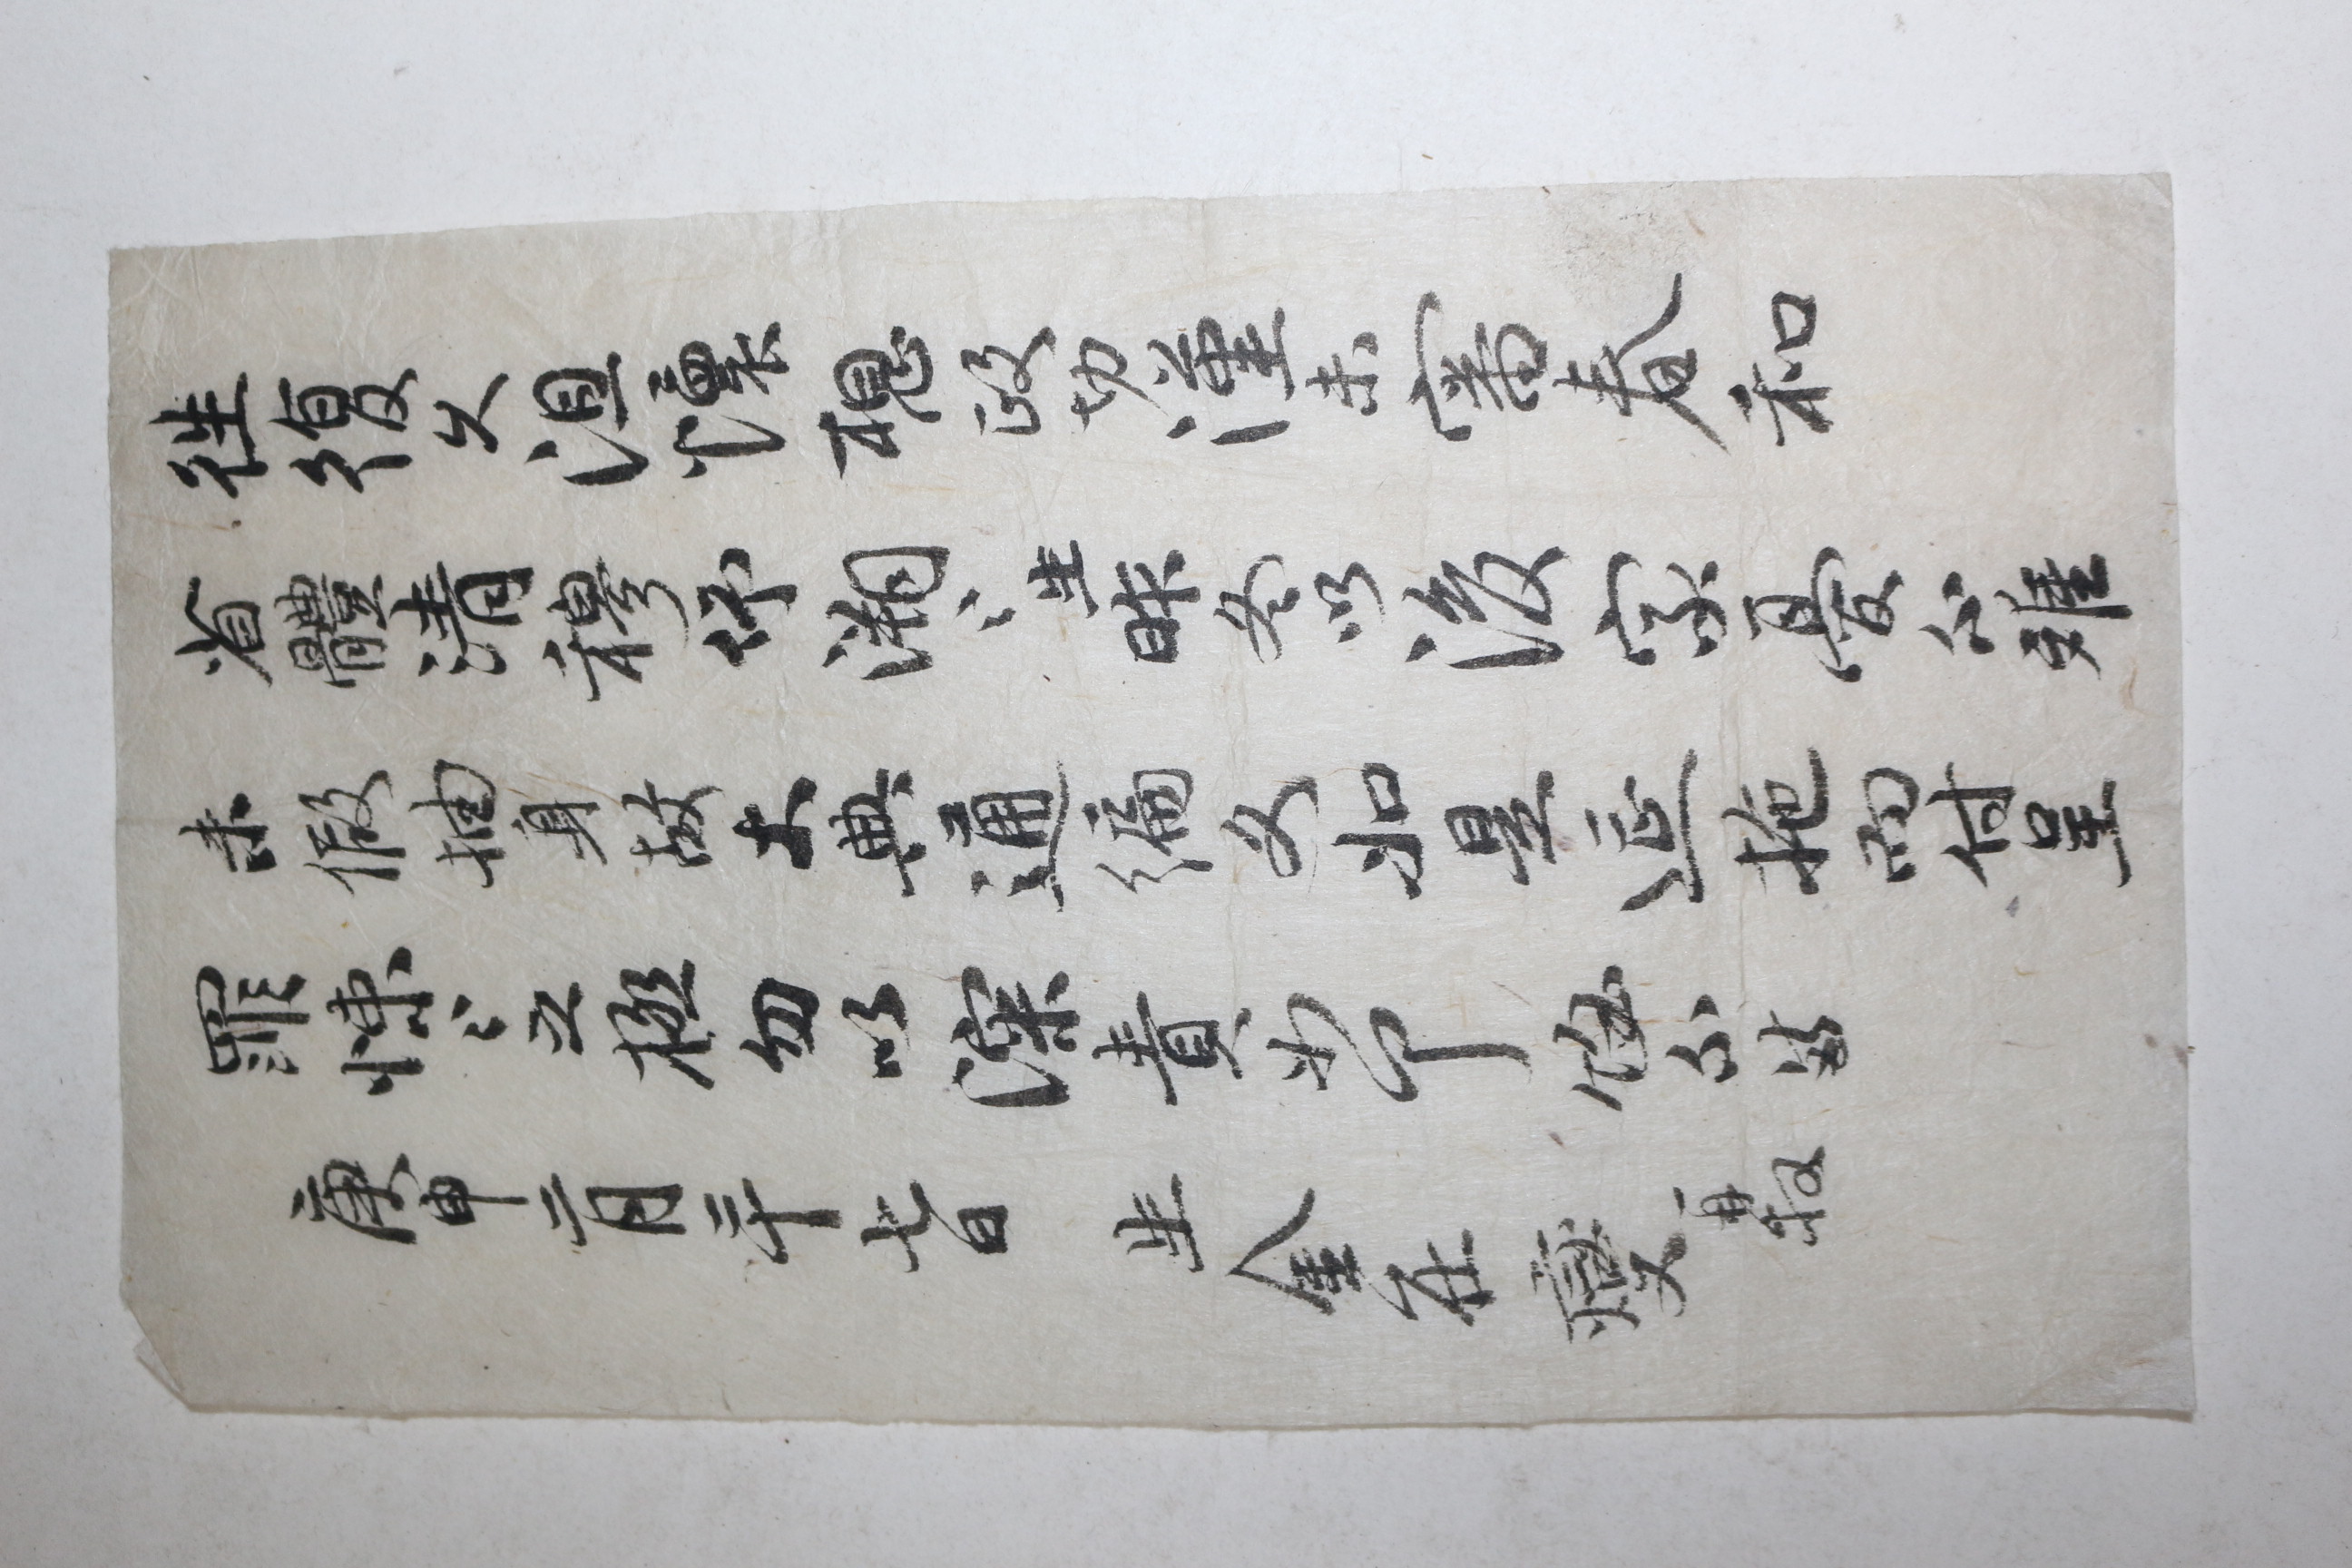 往復久沮懷想政切謹未審春和
省體淸穆仰溯〻生昨冬以後家憂不離
未假抽身故大典通編久如是延拖而付呈
罪悚〻之極勿以深責如何餘不備
庚申二月二十七日 生 金在燮 再拜